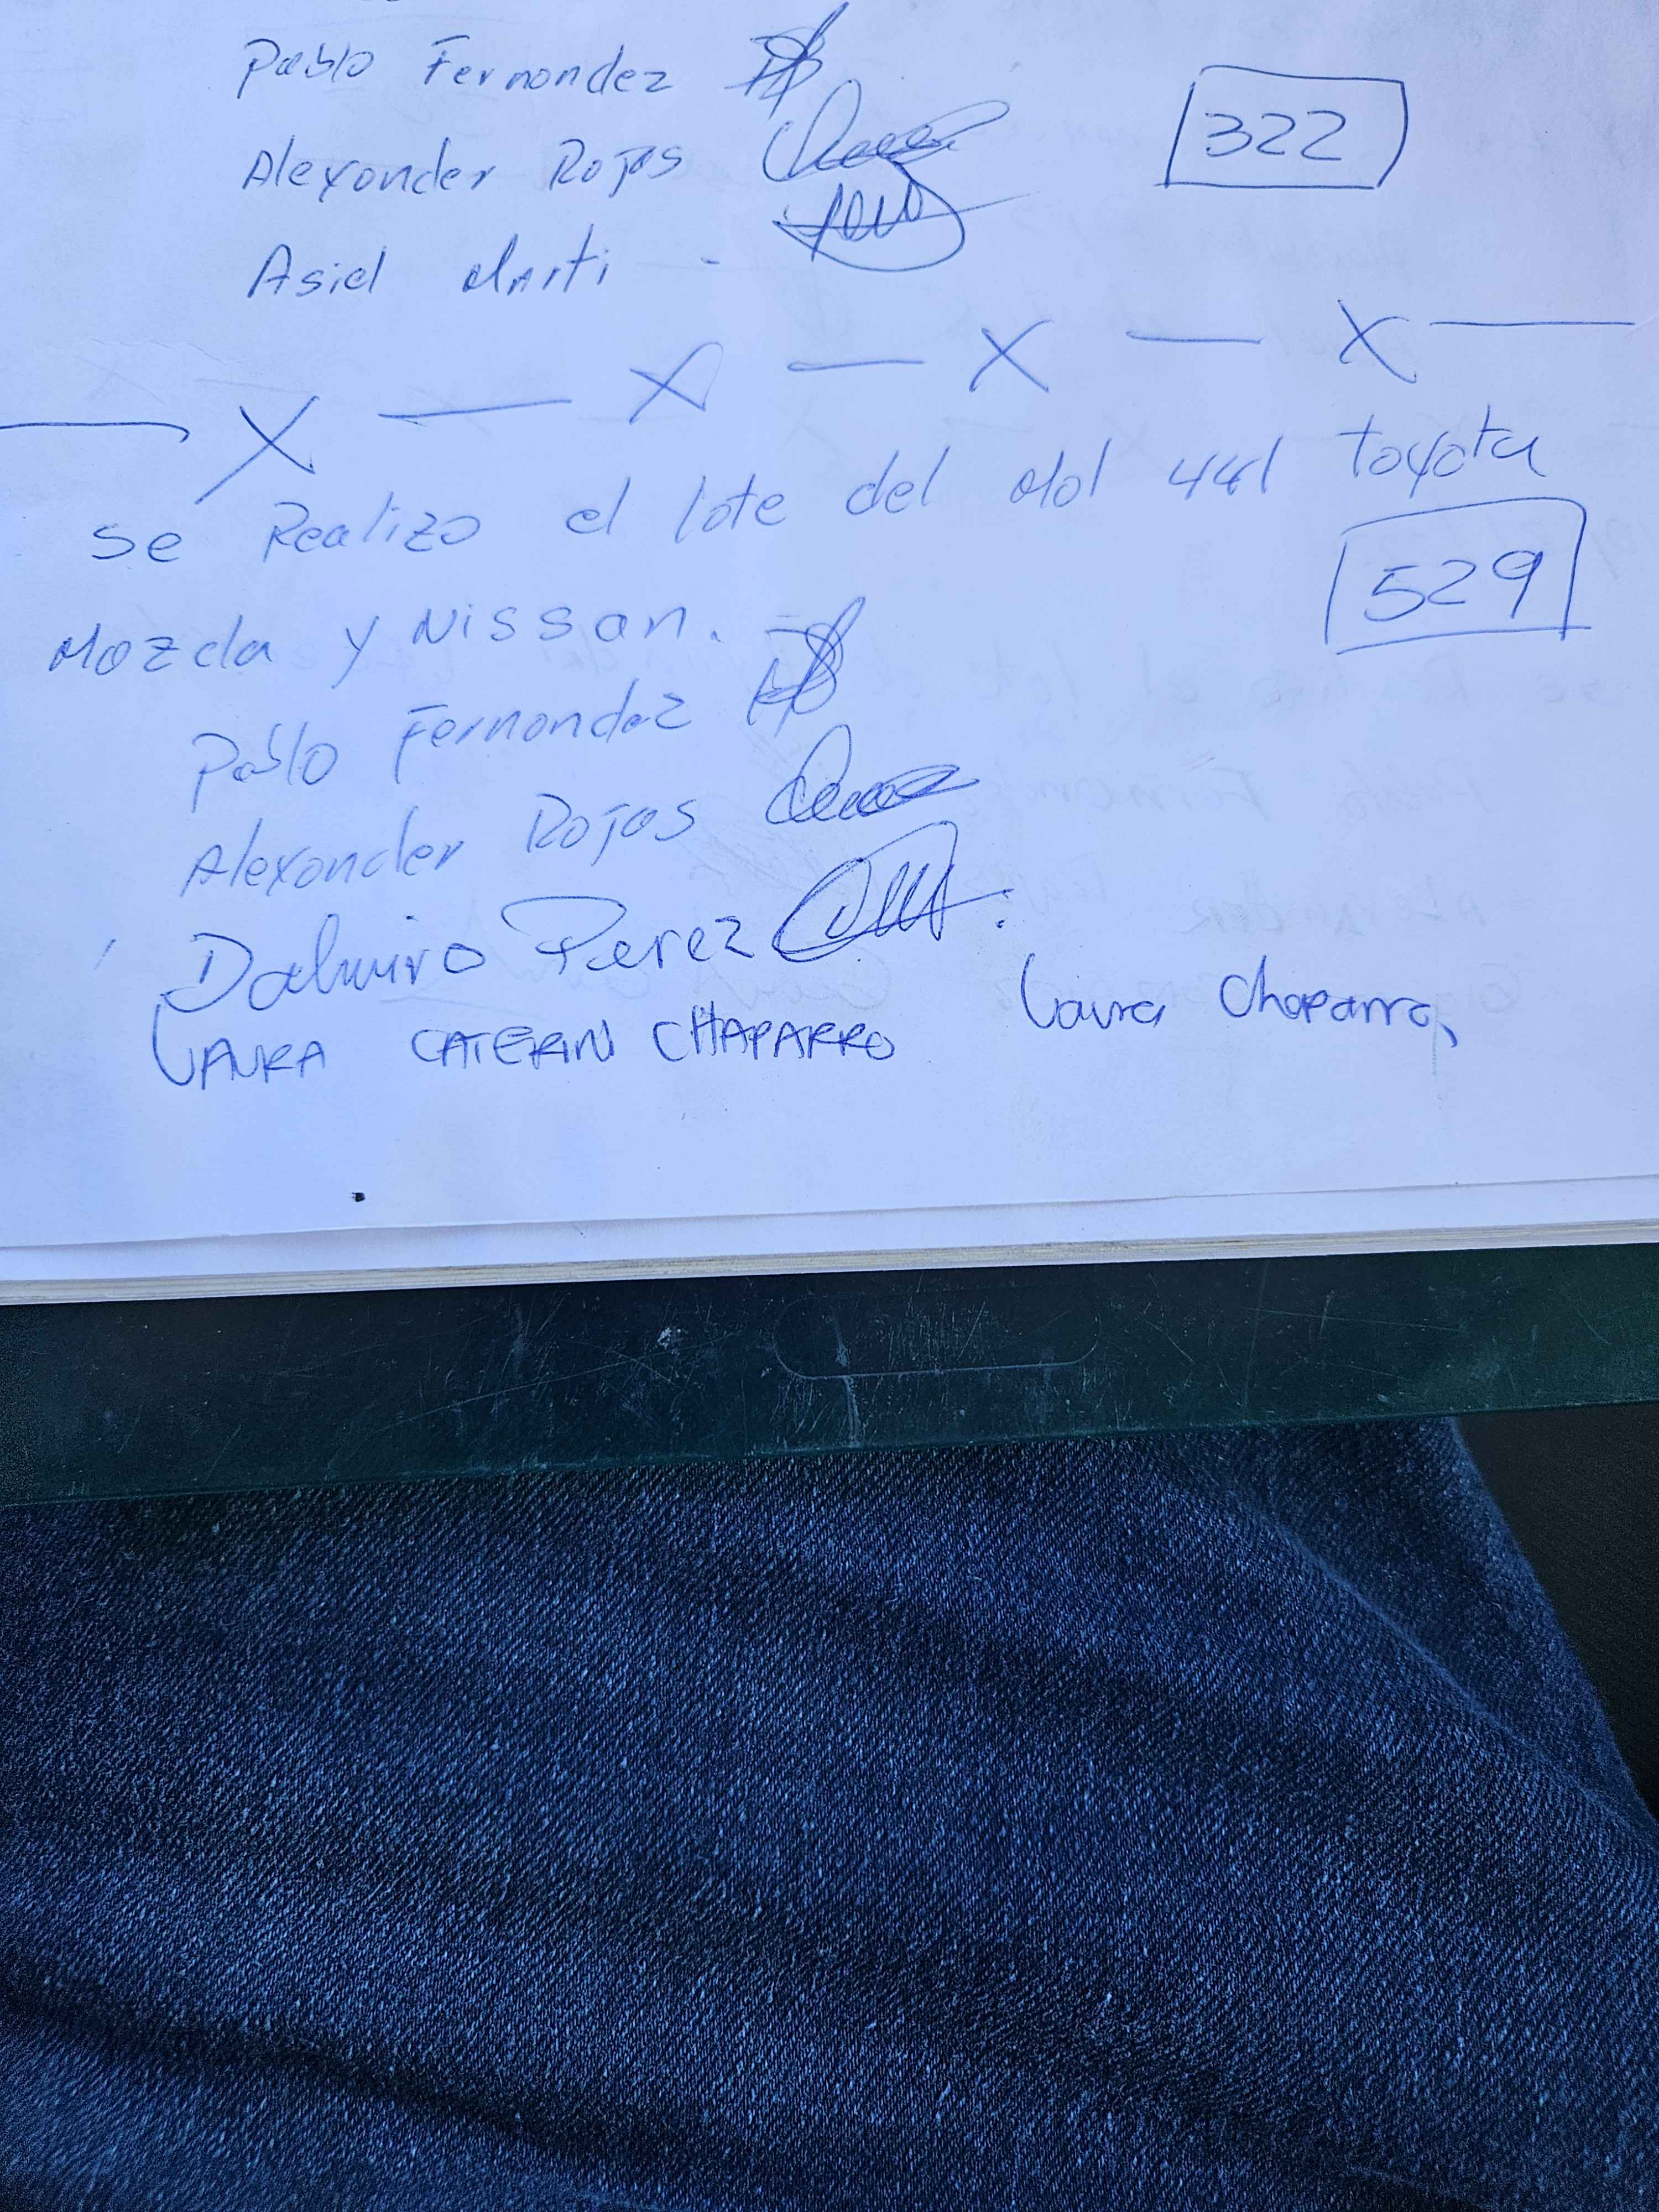 Pablo Fernandez
322
Alexander Rojas
Asiel Marti -
— X — X — X — X —
se Realizo el lote del Mol 441 toyota
529
Mazda y Nissan.
Pablo Fernandez
Alexander Rojas
Dalmiro Perez
LAURA CATERIN CHAPARRO Laura Chaparro